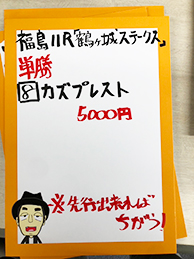 福島11R「鶴ヶ城ステークス」
単勝
8 カズプレスト
5000円
※先行出来れば
ちがう!